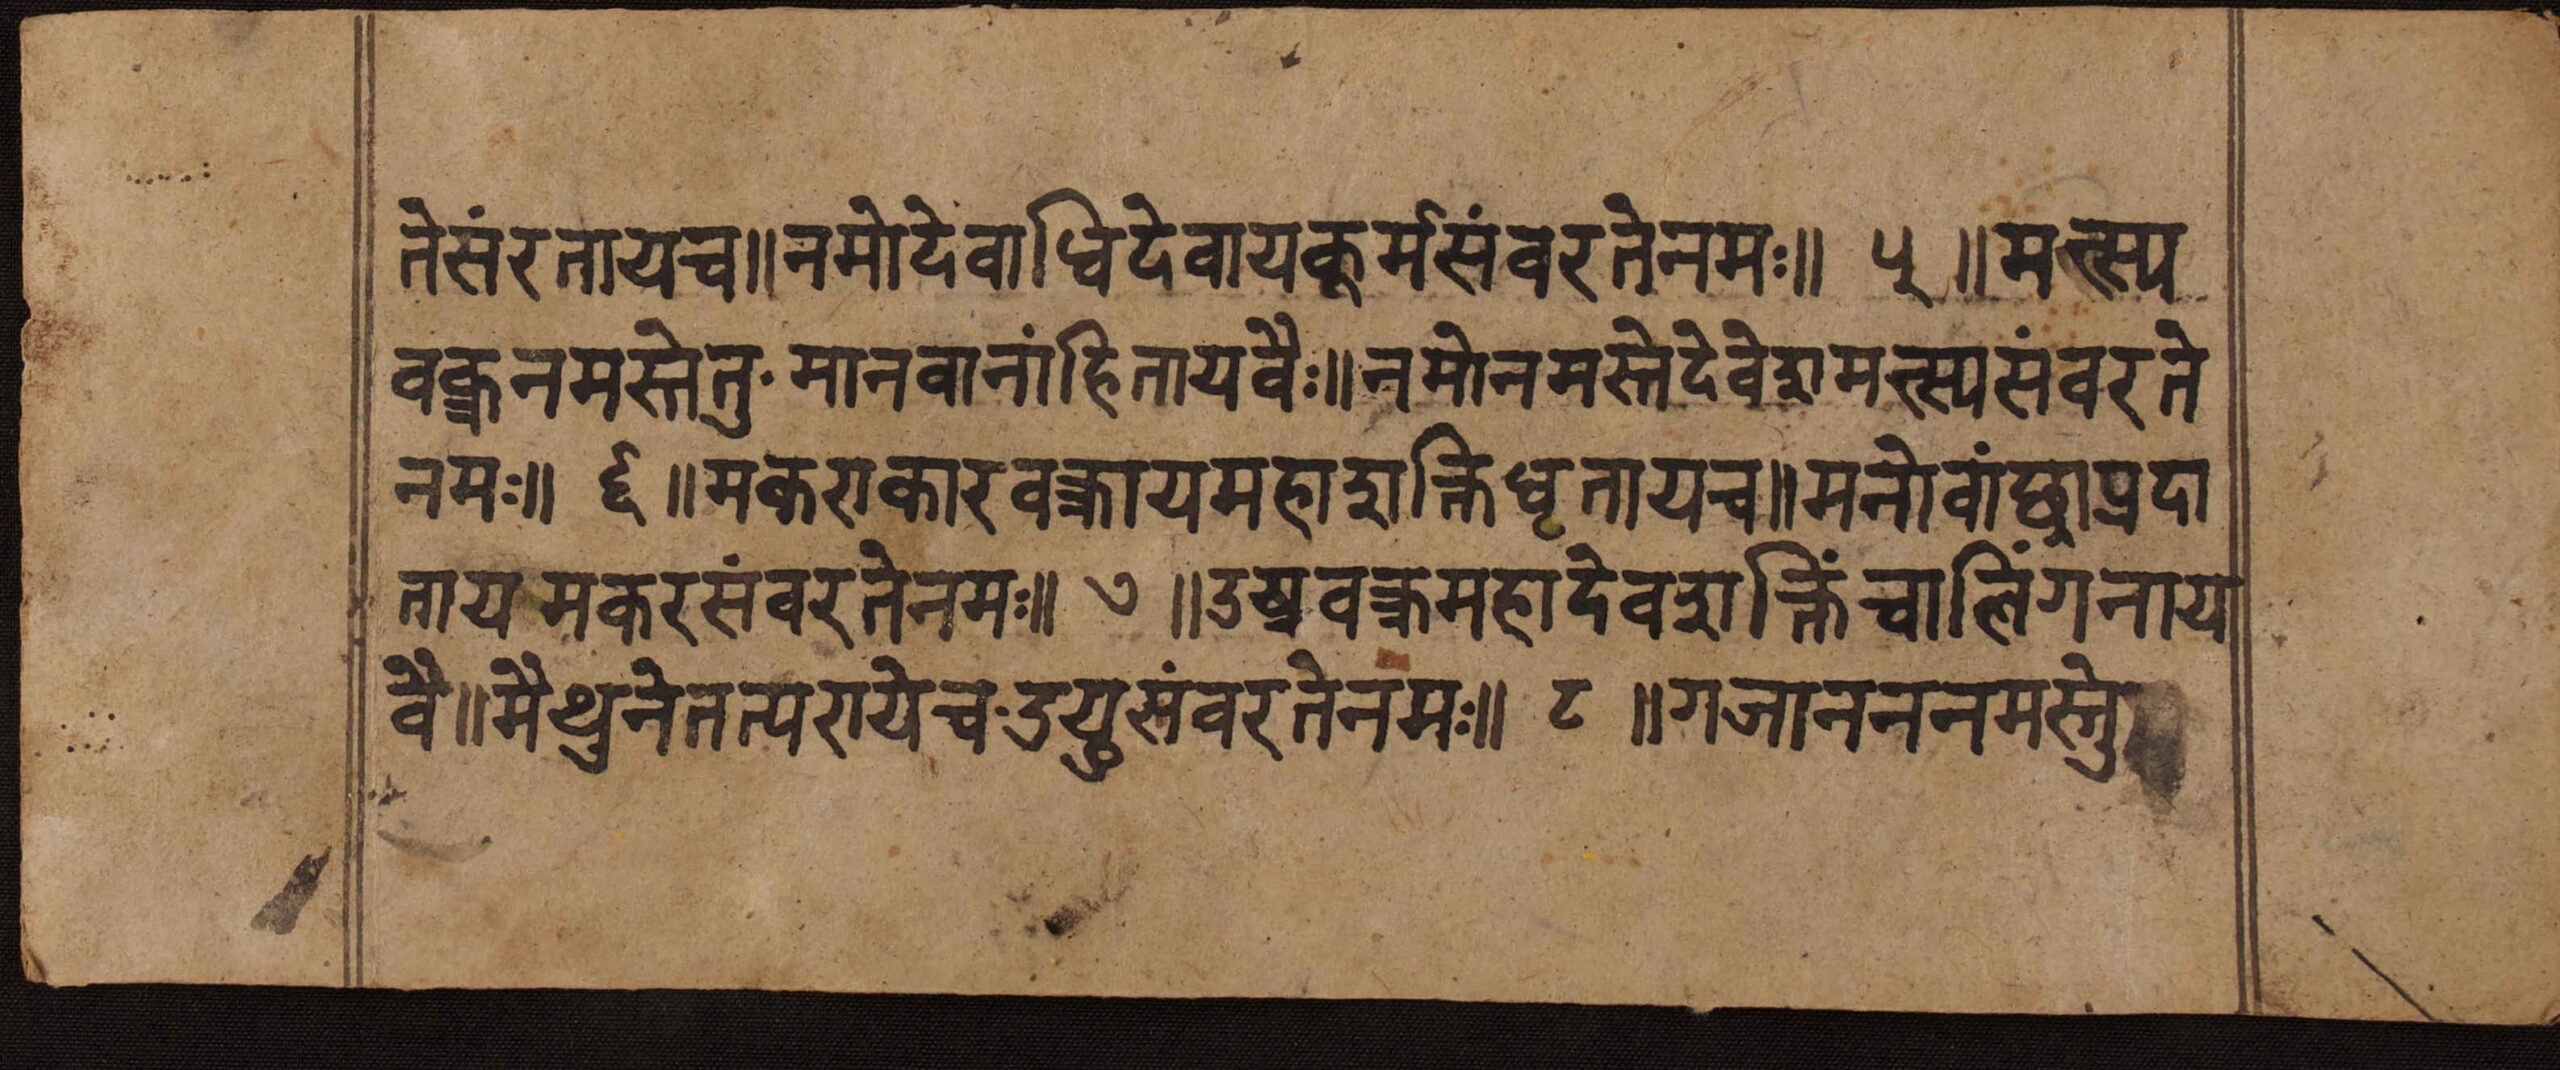 तेसंरतायच॥नमोदेवाधिदेवायकूर्मसंवरतेनमः॥ ५ ॥मत्स्य
वक्त्रनमस्तेतु·मानवानांहितायवैः॥नमोनमस्तेदेवेशमत्स्यसंवरते
नमः॥ ६ ॥मकराकारवक्त्रायमहाशक्तिधृतायच॥मनोवांछाप्रदा
तायमकरसंवरतेनमः॥ ७ ॥उष्ट्रवक्त्रमहादेवशक्तिंचालिंगनाय
वै॥मैथुनेतत्परायेच·उष्ट्रसंवरतेनमः॥ ८ ॥गजानननमस्तु